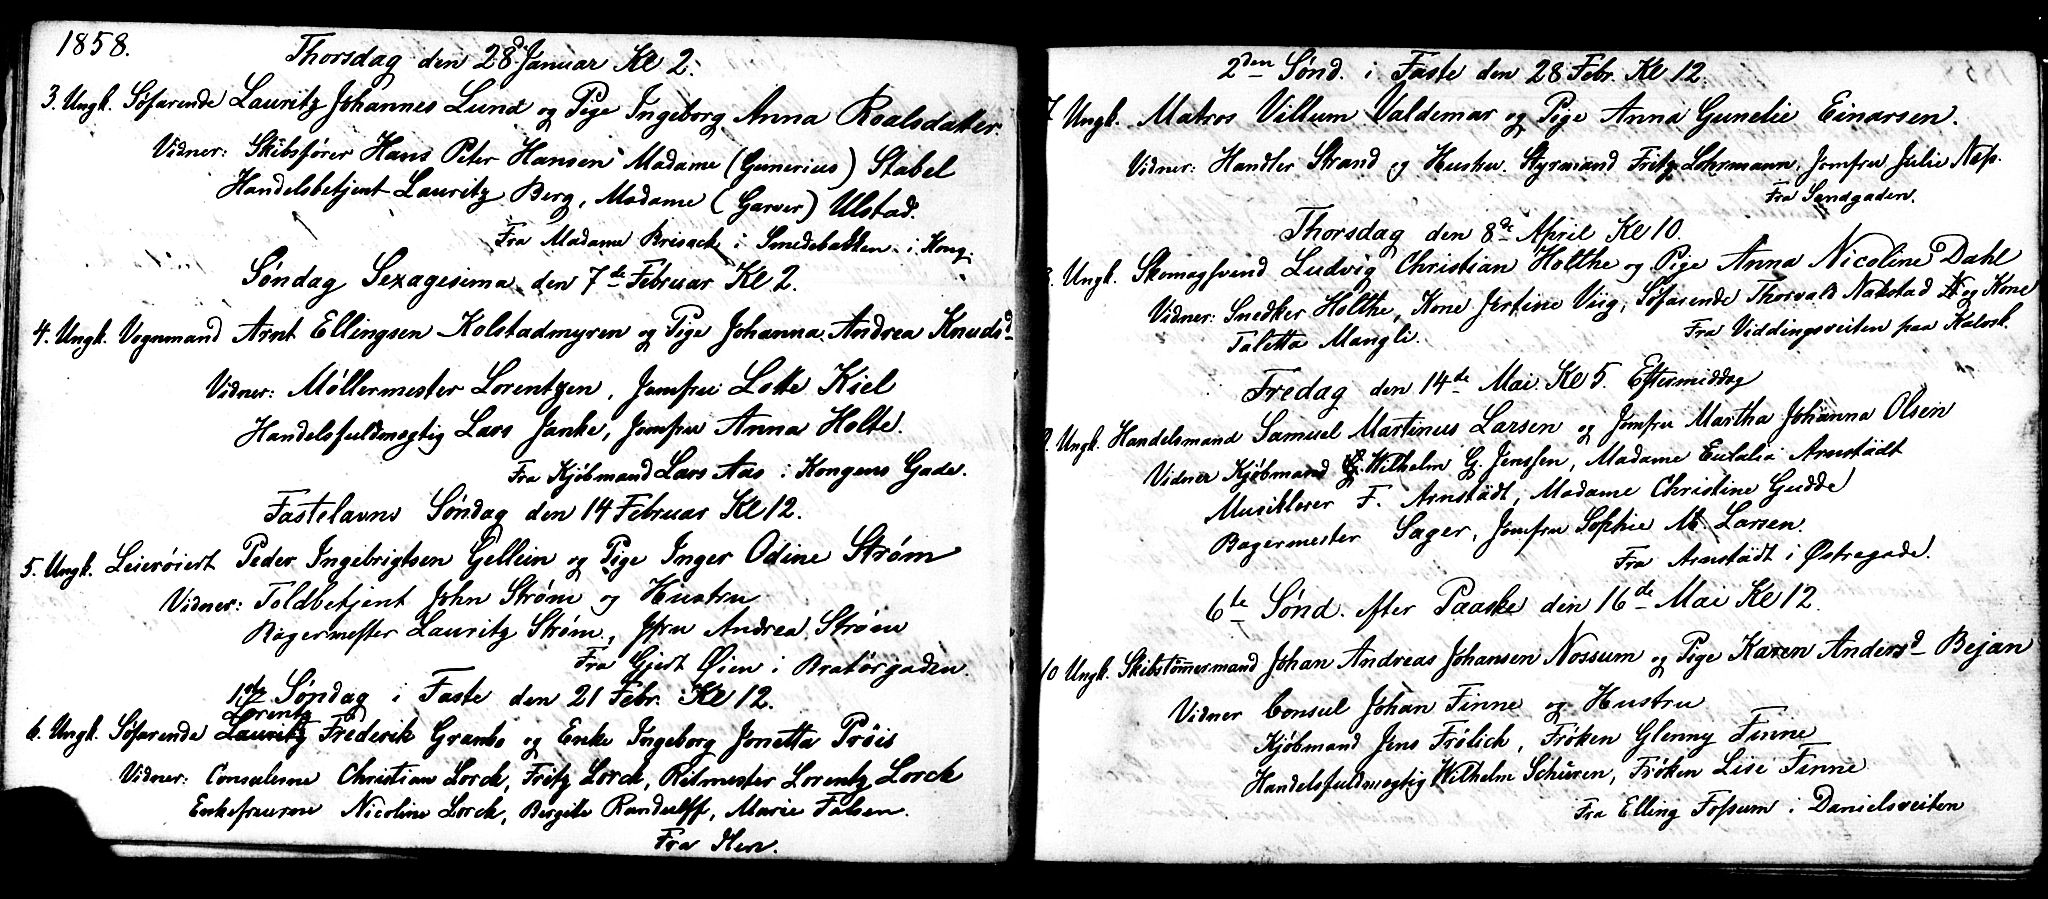 1858.
Thorsdag den 28d Januar Kl 2.
3. Ungk. Søfarende Lauritz Johannes Lund og Pige Ingeborg Anna Roalsdatter.
Vidner: Skibsfører Hans Peter Hansen Madame (Gunerius) Stabel
Handelsbetjent Lauritz Berg, Madame (Garver) Ulstad.
Fra Madame Brisack i Smedebakken i Kong.
Søndag Sexagesima den 7de Februar Kl 2.
4. Ungk. Vognmand Arnt Ellingsen Kolstadmyren og Pige Johanna Andrea Knudsd
Vidner: Møllermester Lorentzen, Jomfru Lotte Kiel
Handelsfuldmegtig Lars Janke, Jomfru Anna Holte.
Fra Kjøbmand Lars Aas i Kongens Gade.
Fastelavns Søndag den 14 Februar Kl 12.
5. Ungk. Leierøiert Peder Ingebrigtsen Gellein og Pige Inger Odine Strøm
Vidner: Toldbetjent John Strøm og Hustru
Bagermester Lauritz Strøm, Jfru Andrea Strøm
Fra Gjert Øien i Bratørgaden.
1ste Søndag i Faste den 21 Febr. Kl 12.
Lorentz
6. Ungk. Søfarende Lauritz Frederik Grambo og Enke Ingeborg Jonetta Prøis
Vidner: Consulerne Christian Lorck, Fritz Lorck, Ritmester Lorentz Lorck
Enkefruerne Nicoline Lorck, Birgitte Randulff, Marie Falsen.
Fra Hen.
2den Sønd. i Faste den 28 Febr. Kl 12
7 Ungk. Matros Villum Valdemar og Pige Anna Gunelie Einarsen.
Vidner: Handler Strand og Hustru. Styrmand Fritz Lohrmann, Jomfru Julie Næs.
Fra Sandgaden.
Thorsdag den 8de April Kl 10.
8. Ungk. Skomagsvend Ludvig Christian Holthe og Pige Anna Nicoline Dahl
Vidner: Snedker Holthe, Kone Jertine Viig, Søfarende Thorvald Nakstad og Kone
Taletta Mangli.
Fra Viddingsveiten paa Kalvsk.
Fredag den 14de Mai Kl 5. Eftermiddag
9. Ungk. Handelsmand Samuel Martinus Larsen og Jomfru Martha Johanna Olsen
Vidner Kjøbmand Wilhelm G. Jenssen, Madame Eulalia Arnstädt
Musiklerer F. Arnstädt, Madame Christine Gudde
Bagermester Sager, Jomfru Sophie M. Larsen.
Fra Arnstädt i Østregade.
6te Sønd. efter Paaske den 16de Mai Kl 12.
10 Ungk. Skibstømmermand Johan Andreas Johansen Nossum og Pige Karen Andersd Bejan
Vidner Consul Johan Finne og Hustru
Kjøbmand Jens Frølich, Frøken Glenny Finne
Handelsfuldmegtig Wilhelm Schüren, Frøken Lise Finne
Fra Elling Fossum i Danielsveiten